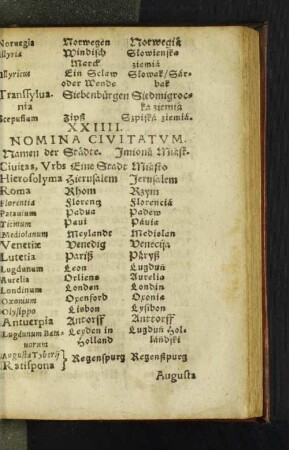 Noruegia Norwegen Norwegia
Illyria Windisch Slowieńska
Marck ziemiá
Illyricus Ein Sclaw Slowak/ Sár-
oder Wende bak
Transsylua- Siebenbürgen Siedmigroc-
nia ka ziemia
Scepusium Zips Spiska ziemiá.
XXIIII.
NOMINA CIVITATVM.
Namen der Städte. Imioná Miást.
Ciuitas, Vrbs Eine Stadt Miásto
Hierosolyma Hierusalem Jeruzalem
Roma Rhom Rzym
Florentia Florentz Florencia
Patauium Padua Padew
Ticinum Paui Páwia
Mediolanum Meylandt Mediolan
Venetiæ Venedig Venecija
Lutetia Pariß Páryß
Lugdunum Leon Lugdun
Aurelia Orliens Aurelia
Londinum London Londin
Oxonium Oxenford Oxonia
Olysippo Lisbon Lysibon
Antuerpia Antorff Antorff
Lugdunum Bata- Leyden in Lugdun Hol-
uorum Holland lándski
Augusta Tyberij
Ratispona } Regenspurg Regenßpurg
Augusta